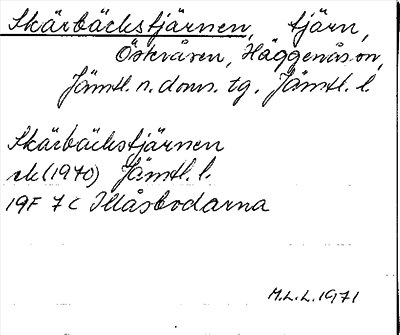 Skärbäckstjärnen, tjärn,
Öskvåren, Häggenås sn,
Jämtl. n. doms. tg. Jämtl. l.
Skärbäckstjärnen
ek (1970) Jämtl. l.
19F 7c Illåsbodarna
M.L.L. 1971